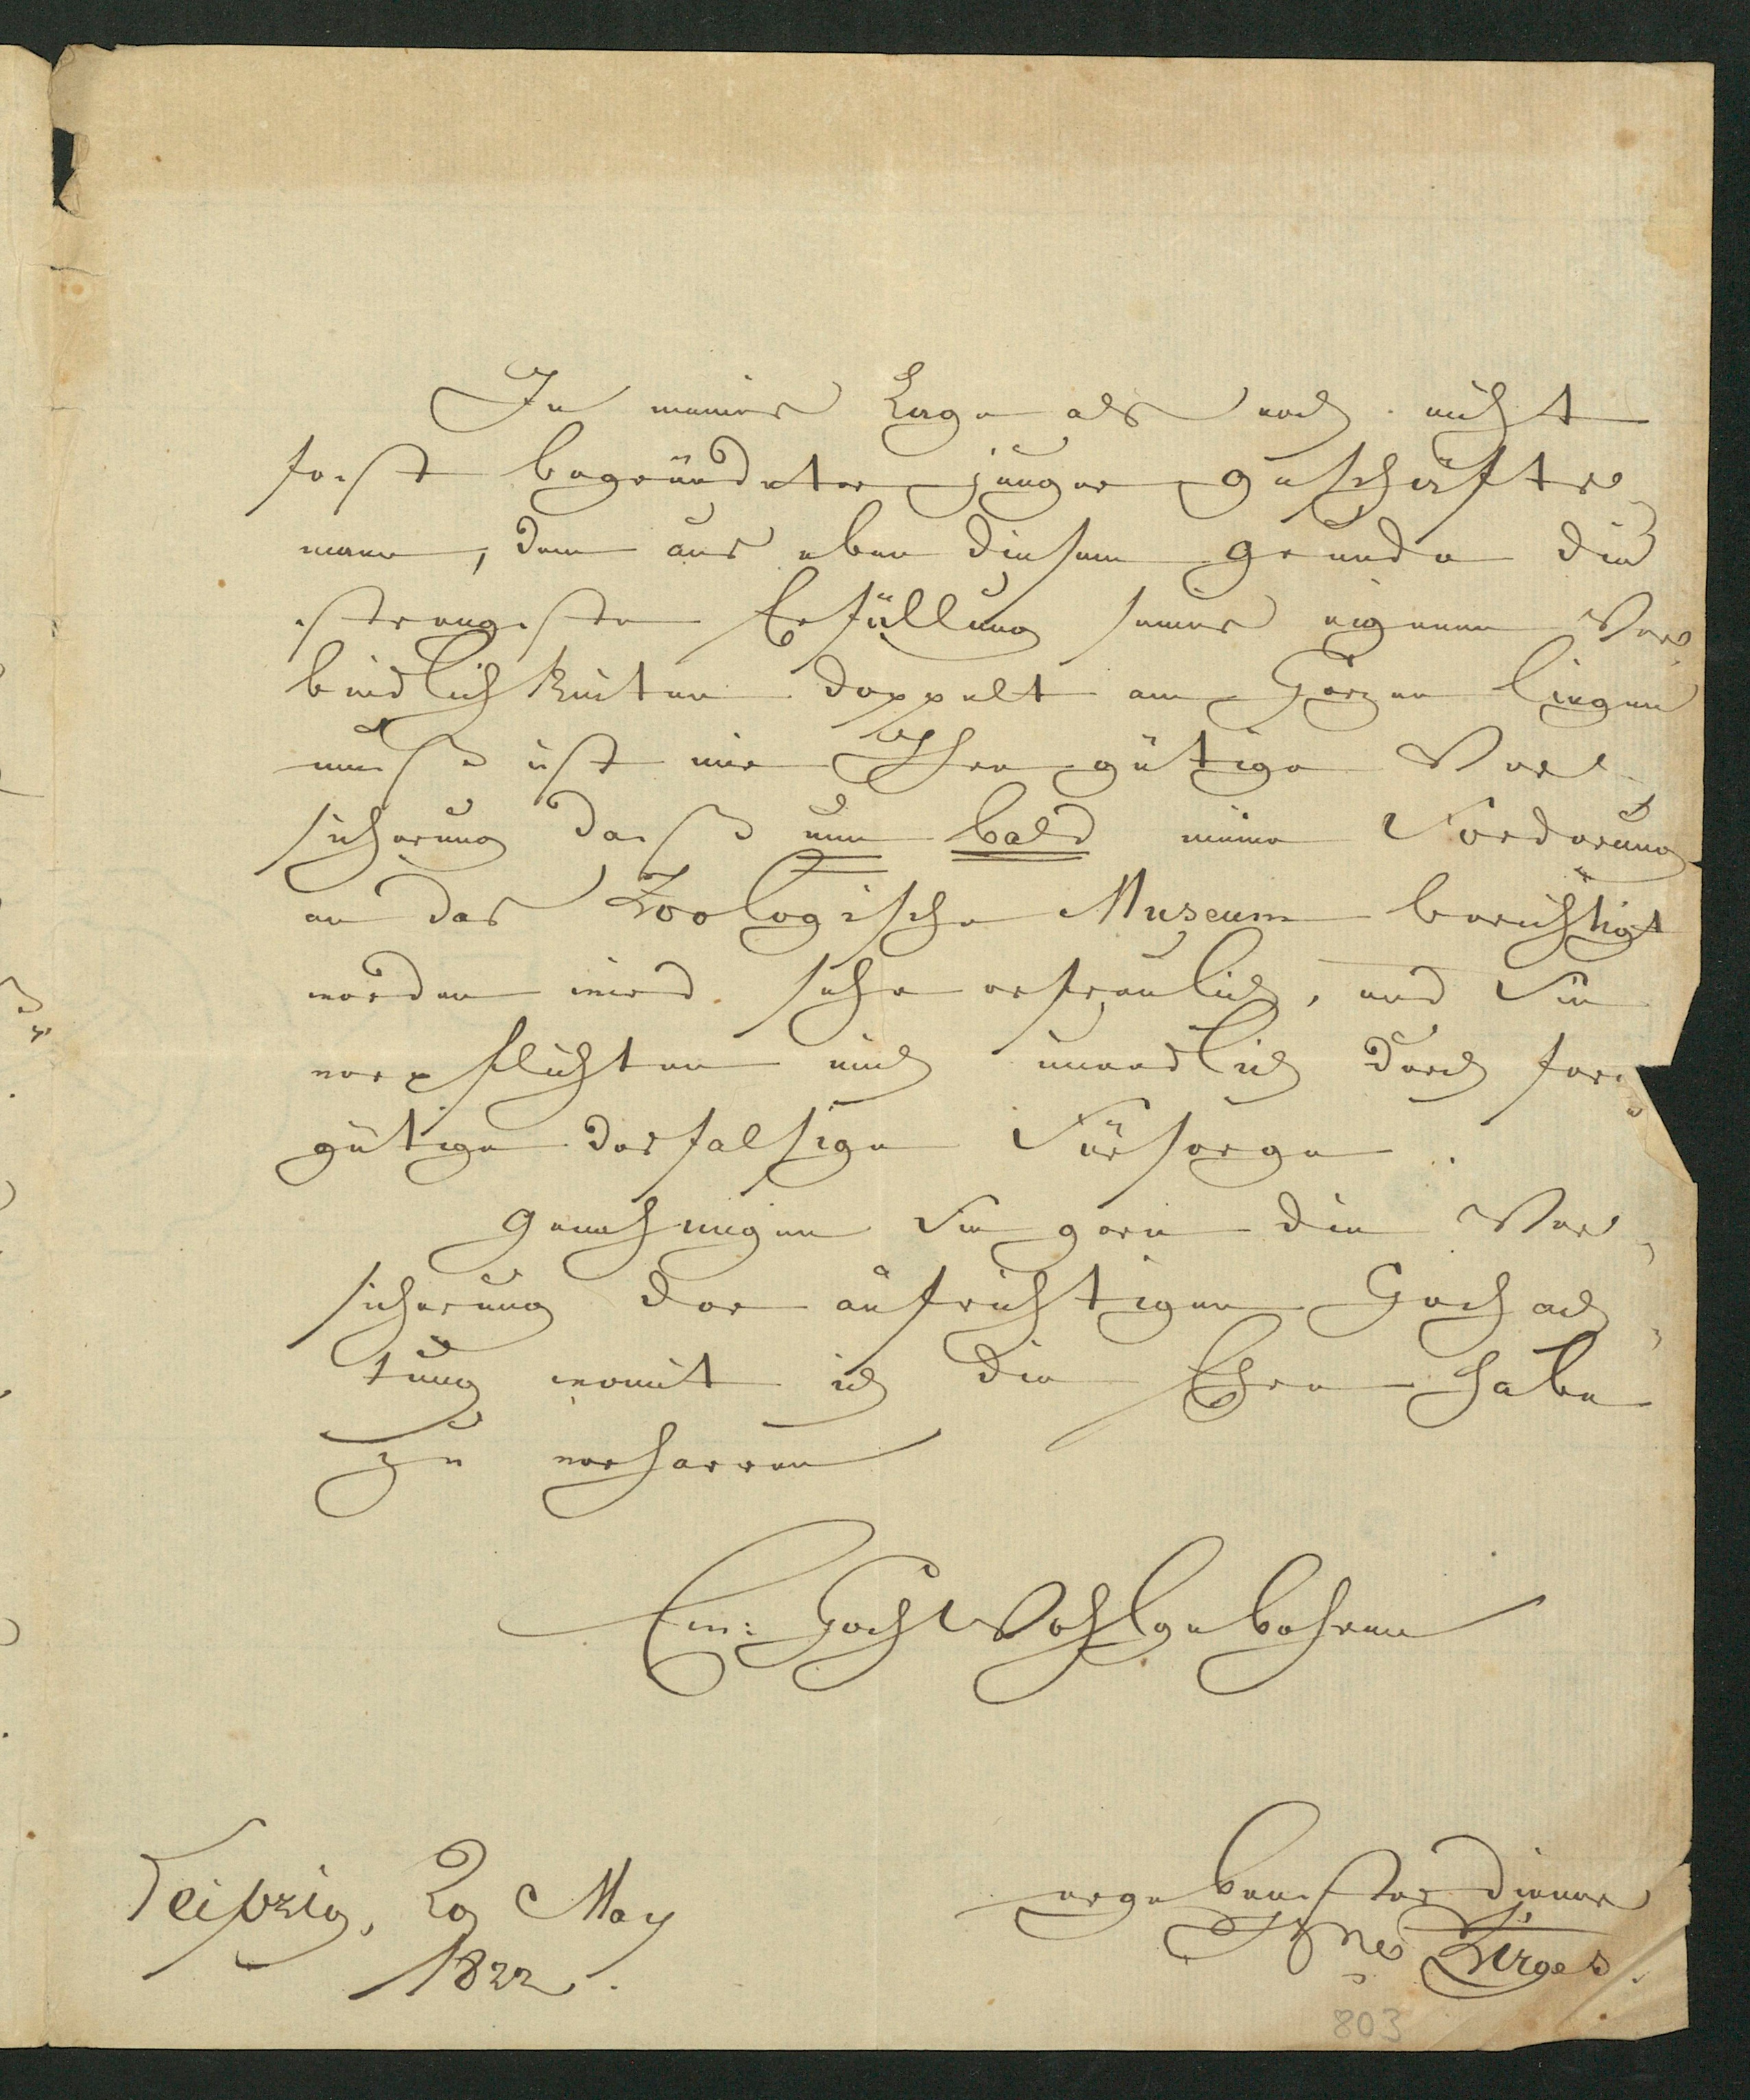 In meiner Lage als noch nicht
fest begründeter junger Geschäfts-
mann, dem aus eben diesem Grunde die
strengste Erfüllung seiner eigenen Ver-
bindlichkeiten doppelt am Herzen liegen
muß ist mir Ihre gütige Ver-
sicherung daß nun bald meine Forderung
an das Zoologische Museum berichtigt
werden wird sehr erfreulich, und Sie
verpflichten mich unendlich durch
gütige desfalsige Fürsorge.
Genehmigen Sie gern die Ver-
sicherung der aufrichtigen Hochach-
tung womit ich die Ehre habe
zu verharren
Ew: HochWohlgebohren
ergebenster Diener
Zirges.
Leipzig, 29 May
1822.
803